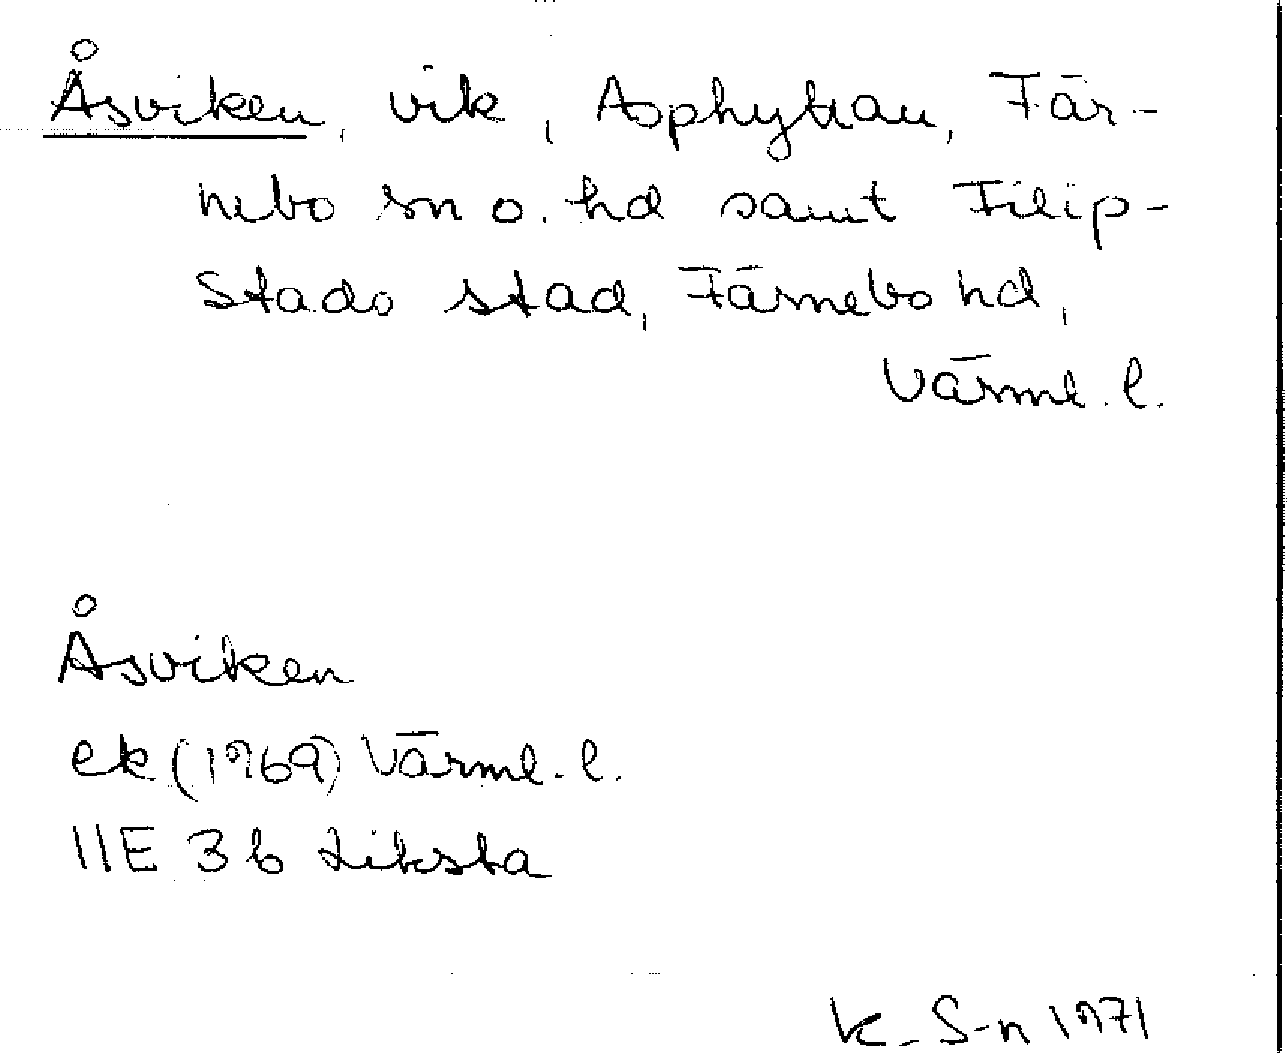 Åsviken, vik, Asphyttan, Fär-
nebo sn o. hd samt Filip-
stads stad, Färnebo hd,
Värml. l.
Åsviken
ek (1969) Värml. l.
11E 3b Liksta
K. S-n 1971